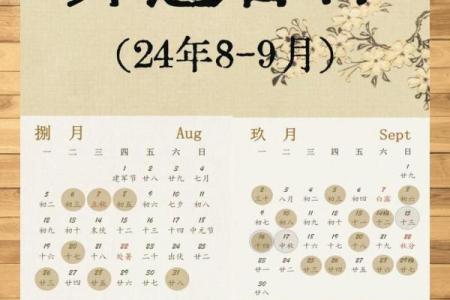 (24年8-9月)
捌 月 Aug
一 二 三 四 五 六 日
1 2 3 4
建军节 廿八 廿九 七月
5 6 7 8 9 10 11
初二 初三 立秋 初五 初六 七夕 初八
12 13 14 15 16 17 18
初九 初十 末伏 十二 十三 十四 中元节
19 20 21 22 23 24 25
十六 十七 十八 处暑 二十 出伏 廿二
26 27 28 29 30 31
廿三 廿四 廿五 廿六 廿七 廿八
玖 月 Sept
一 二 三 四 五 六 日
1
廿九
2 3 4 5 6 7 8
三十 八月 初二 初三 初四 白露 初六
9 10 11 12 13 14 15
初七 初八 初九 初十 十一 十二 十三
16 17 18 19 20 21 22
十四 中秋 十六 十七 十八 十九 秋分
23 24 25 26 27 28 29
廿一 廿二 廿三 廿四 廿五 廿六 廿七
30
廿八